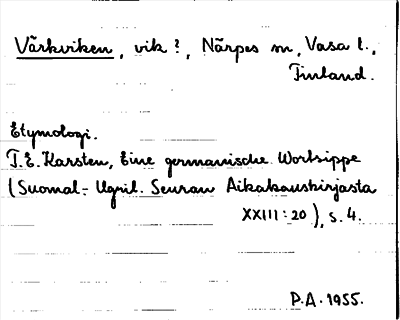 Vårkviken, vik?, Närpes sn, Vasa l.,
Finland.
Etymologi.
T.E. Karsten, Eine germanische Wortsippe
(Suomal.-Ugril. Seuran Aikakauskirjasta
XXIII:20), s. 4.
P.A. 1955.